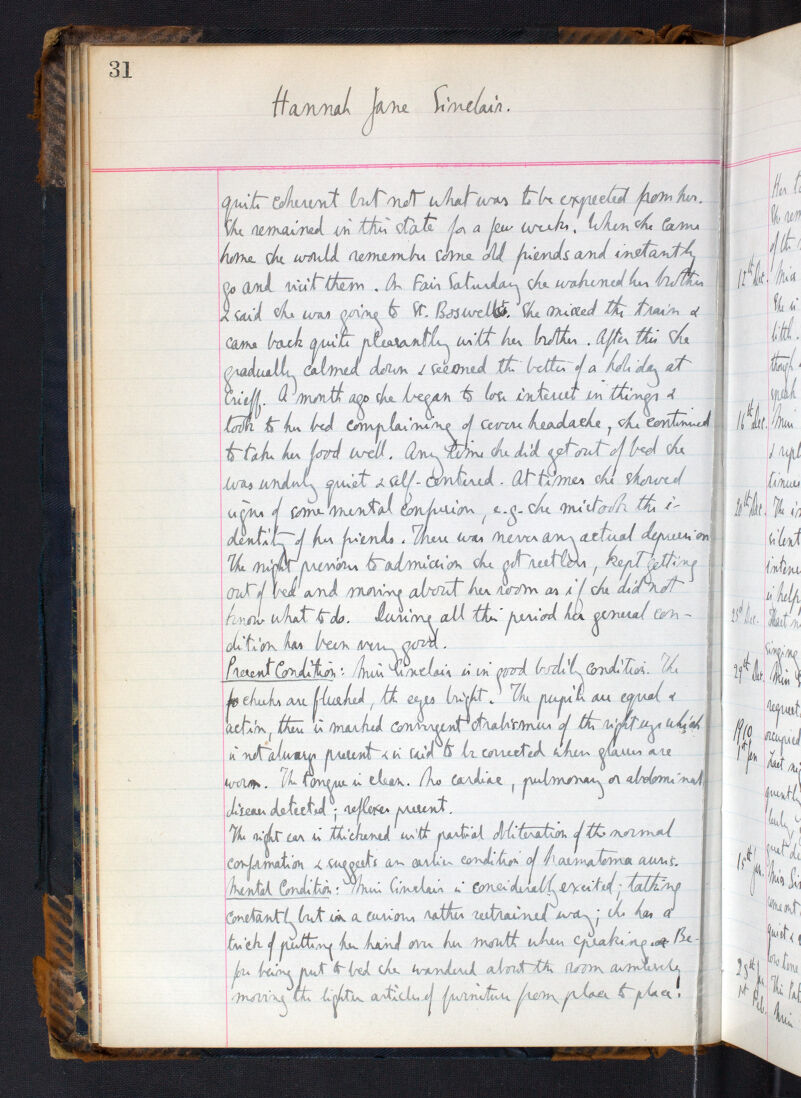 31
Hannah Jane Sinclair.
quite coherent but not what was to be expected from her.
She remained in this state for a few weeks. When she came
home she would remember some old friends and instantly
go and visit them. On Fair Saturday she wakened her brother
& said she was going to St. Boswells. She missed the train &
came back quite pleasantly with her brother. After this she
gradually calmed down & seemed the better of a holiday at
Crieff. A month ago she began to lose interest in things &
took to her bed complaining of severe headache, she continued
to take her food well. Any time she did get out of bed she
was unduly quiet & self-centered. At times she showed
signs of some mental confusion, e.g. she mistook the i-
dentity of her friends. There was never any actual depression
The night previous to admission she got restless, kept getting
out of bed and moving about her room as if she did not
know what to do. During all this period her general con-
dition has been very good.
Present Condition: Miss Sinclair is in good bodily condition. The
cheeks are flushed, the eyes bright. The pupils are equal &
active, there is marked convergent strabismus of the right eye which
is not always present & is said to be corrected when glasses are
worn. The tongue is clean. No cardiac, pulmonary or abdominal
disease detected; reflexes present.
The right ear is thickened with partial obliteration of the normal
conformation & suggests an earlier condition of haematoma auris.
Mental Condition: Miss Sinclair is considerably excited; talking
constantly but in a curious rather restrained way; she has a
trick of putting her hand over her mouth when speaking. Be-
fore being put to bed she wandered about the room aimlessly
moving the lighter articles of furniture from place to place!
12th Dec. Miss
16th Dec. Miss
20th Dec. The
23rd Dec.
29th Dec. Miss
1910
1st Jan
15th Jan. Miss
1st Feb. Miss